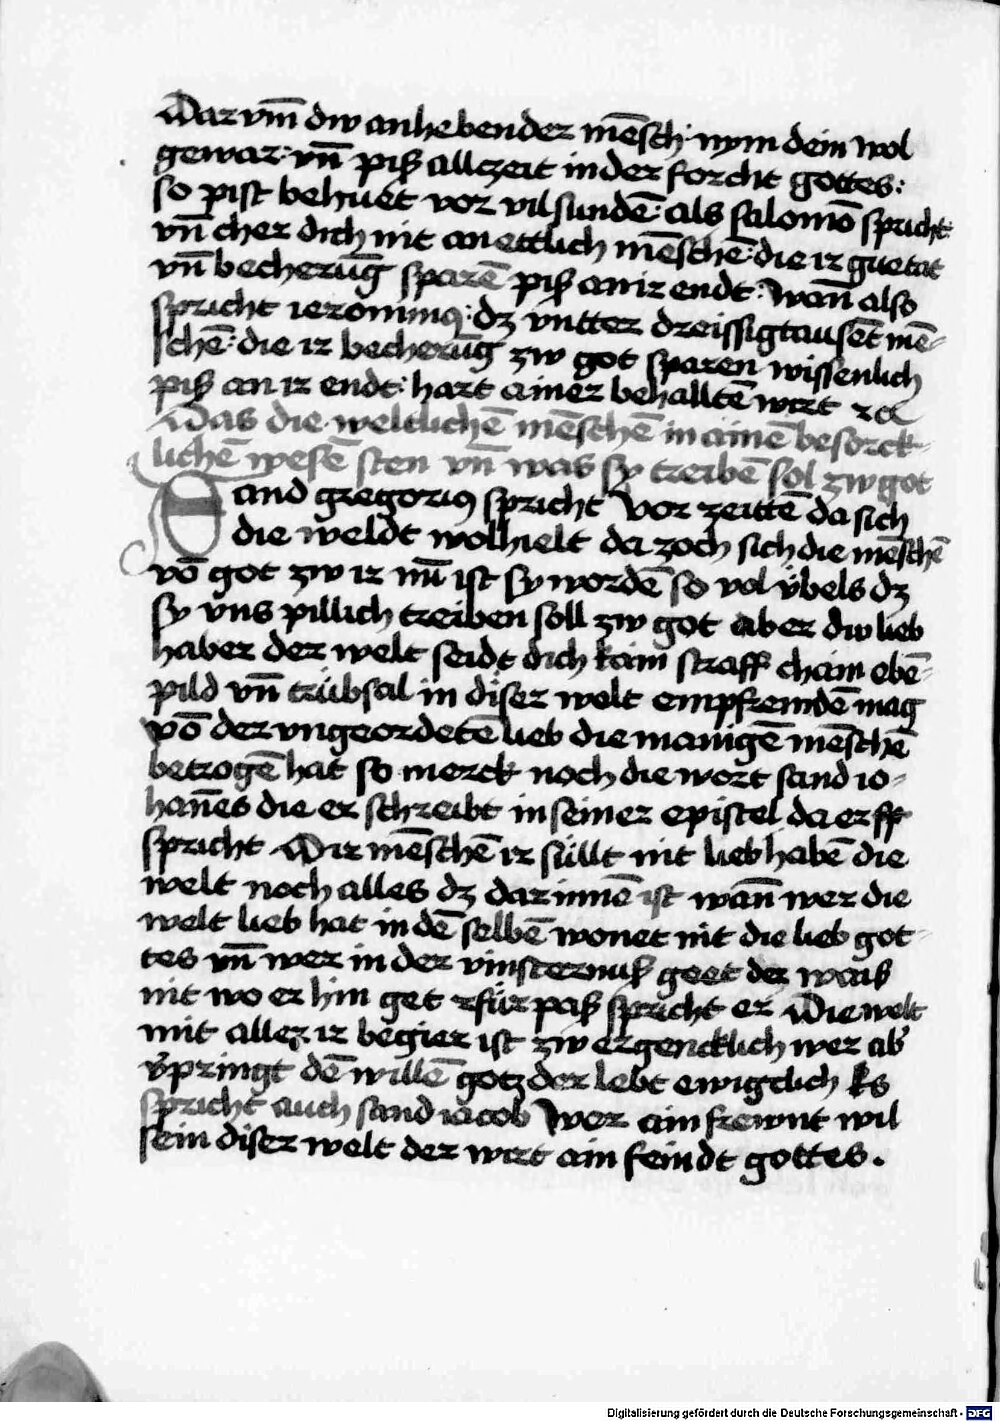 Darvm̄ dw anhebender mēsch: nym dein wol
gewar: vn̄ piß allczeit in der forcht gottes:
so pist behuet vor vil sundē: als salomō spricht:
vn̄ cher dich nit an ettlich mēschē: die ir guetat
vn̄ becherūg sparē piß an ir endt: wan̄ also
spricht ieronimꝰ: dz vntter dreissigtausēt mē-
schē: die ir becherūg zw got sparen wissenlich
piß an ir endt: hart ainer behalltē wirt ꝛc
Das die weltlichē mēschē in ainē besorck-
lichē wesē sten vn̄ was sy treibē sol zw got
Sand gregoriꝰ spricht vor zeittē da sich
die weldt wolhielt da zoch sich die mēschē
vō got zw ir nū ist sy wordē so vol übels dz
sy vns pillich treiben soll zw got aber dw lieb
haber der welt seidt dich kain straff chain ebē-
pild vn̄ trübsal in diser welt empfremdē mag
vō der vngeordetē lieb die manigē mēschē
betrogē hat so merck noch die wort sand io-
han̄es die er schreibt in seiner epistel da er
spricht Dir mēschē ir süllt nit lieb habē die
welt noch alles dz dar innē ist wan̄ wer die
welt lieb hat in dē selbē wonet nit die lieb got-
tes vn̄ wer in der vinsternuß geet der wais
nit wo er hin get fürpaß spricht er Die welt
mit aller ir begier ist zw ergencklich wer ab
v̾pringt dē willē gotz der lebt ewigclich Es
spricht auch sand iacob Wer ain frewnt wil
sein diser welt der wirt ain feindt gottes.
Digitalisierung gefördert durch die Deutsche Forschungsgemeinschaft - DFG